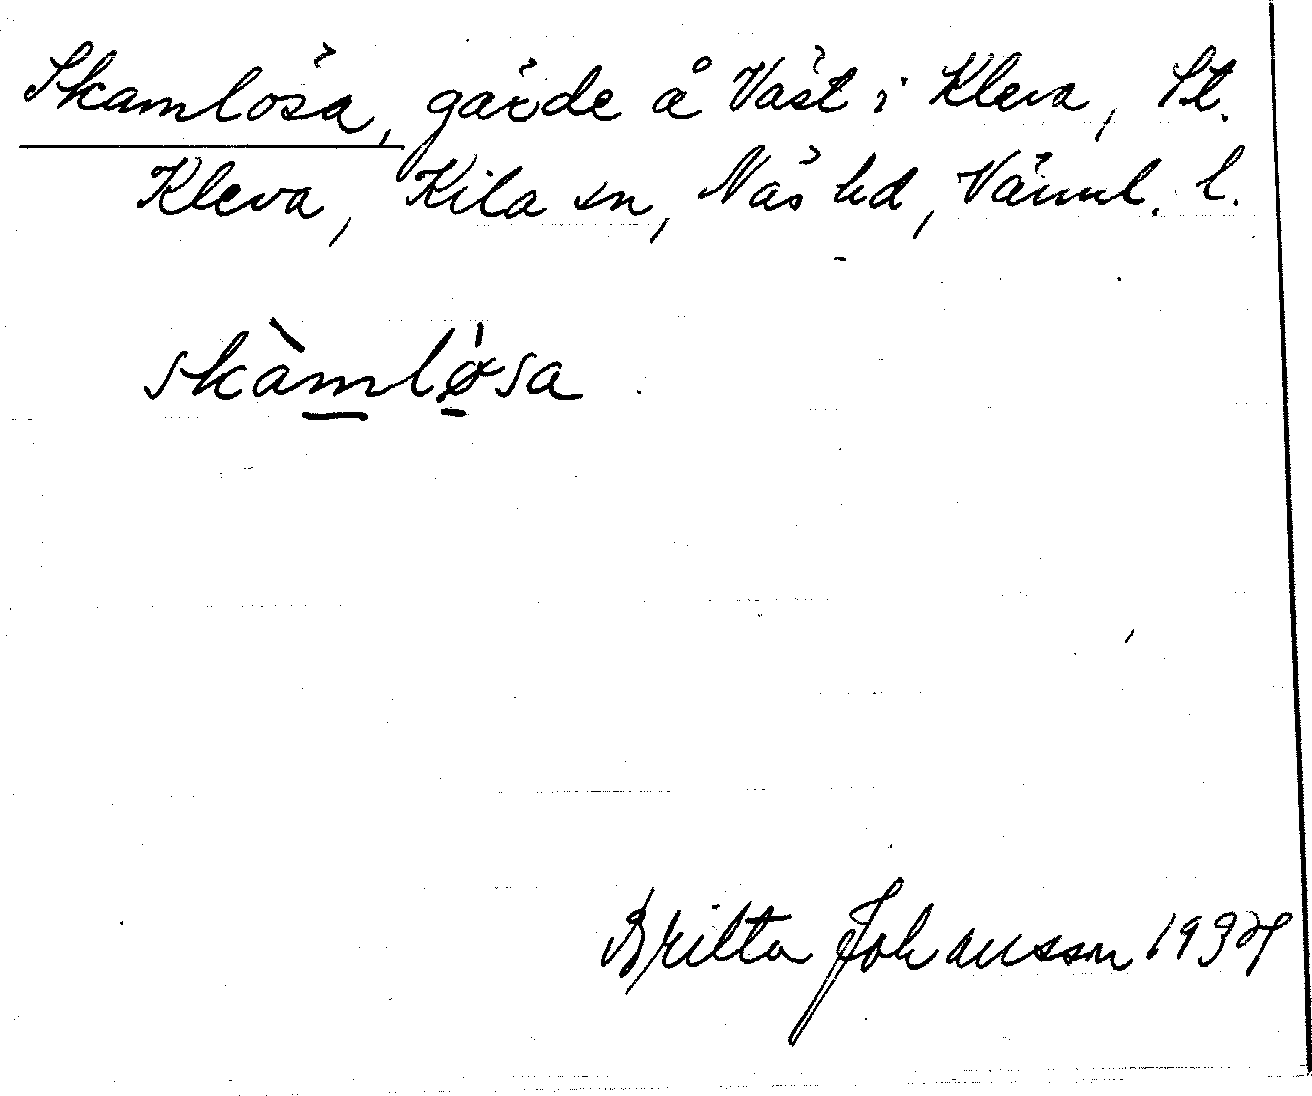 Skamlösa, gärde å Väst i Kleva, St.
Kleva, Kila sn, Näs hd, Värml. l.
skàmlø̀sa
Britta Johansson